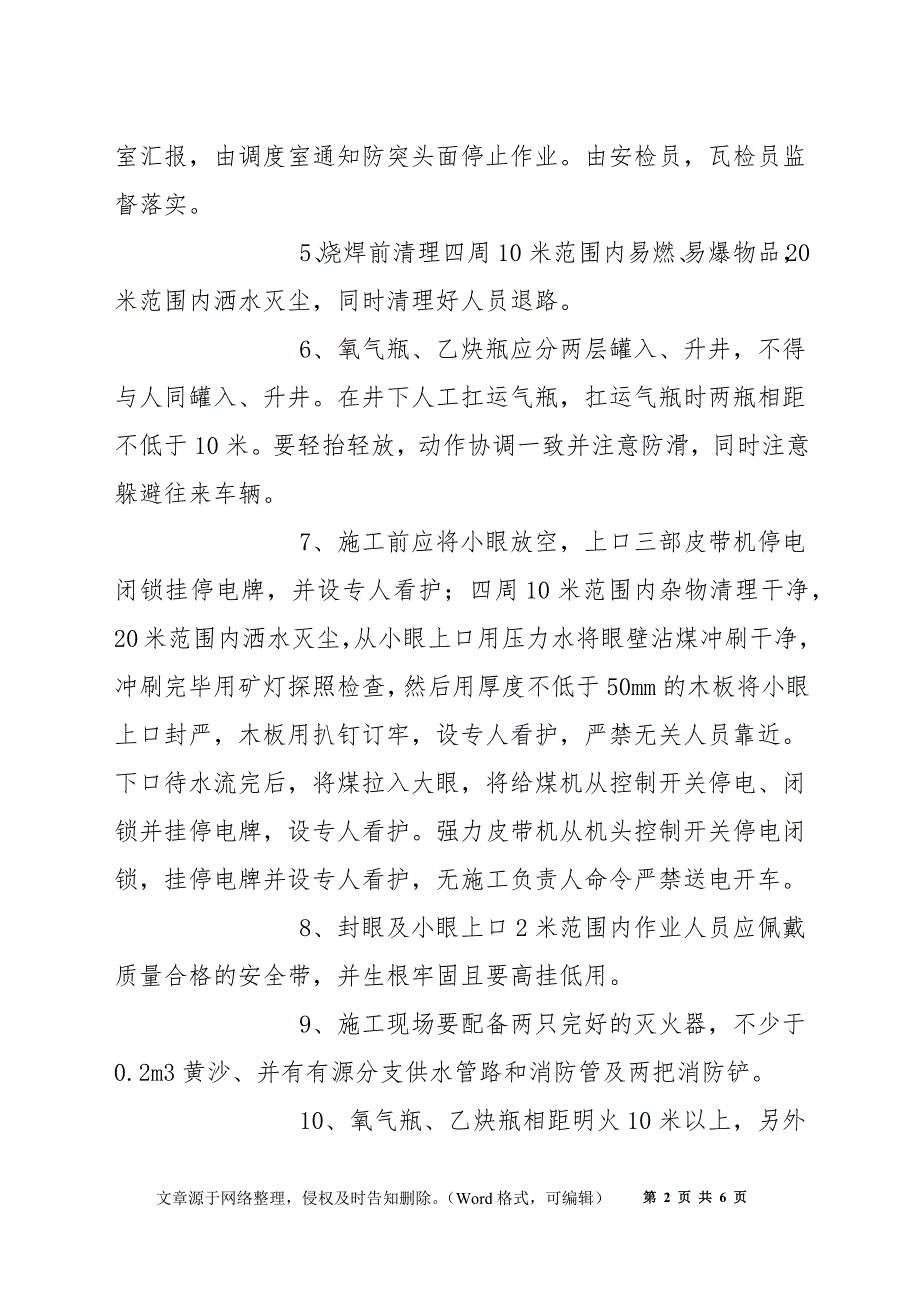 室汇报，由调度室通知防突头面停止作业。由安检员，瓦检员监
督落实。
5、烧焊前清理四周 10 米范围内易燃、易爆物品，20
米范围内洒水灭尘，同时清理好人员退路。
6、氧气瓶、乙炔瓶应分两层罐入、升井，不得
与人同罐入、升井。在井下人工扛运气瓶，扛运气瓶时两瓶相距
不低于 10 米。要轻抬轻放，动作协调一致并注意防滑，同时注意
躲避往来车辆。
7、施工前应将小眼放空，上口三部皮带机停电
闭锁挂停电牌，并设专人看护；四周 10 米范围内杂物清理干净，
20 米范围内洒水灭尘，从小眼上口用压力水将眼壁沾煤冲刷干净，
冲刷完毕用矿灯探照检查，然后用厚度不低于 50mm 的木板将小眼
上口封严，木板用扒钉订牢，设专人看护，严禁无关人员靠近。
下口待水流完后，将煤拉入大眼，将给煤机从控制开关停电、闭
锁并挂停电牌，设专人看护。强力皮带机从机头控制开关停电闭
锁，挂停电牌并设专人看护，无施工负责人命令严禁送电开车。
8、封眼及小眼上口 2 米范围内作业人员应佩戴
质量合格的安全带，并生根牢固且要高挂低用。
9、施工现场要配备两只完好的灭火器，不少于
0.2m3 黄沙、并有有源分支供水管路和消防管及两把消防铲。
10、氧气瓶、乙炔瓶相距明火 10 米以上，另外
文章源于网络整理，侵权及时告知删除。（Word 格式，可编辑） 第 2 页 共 6 页